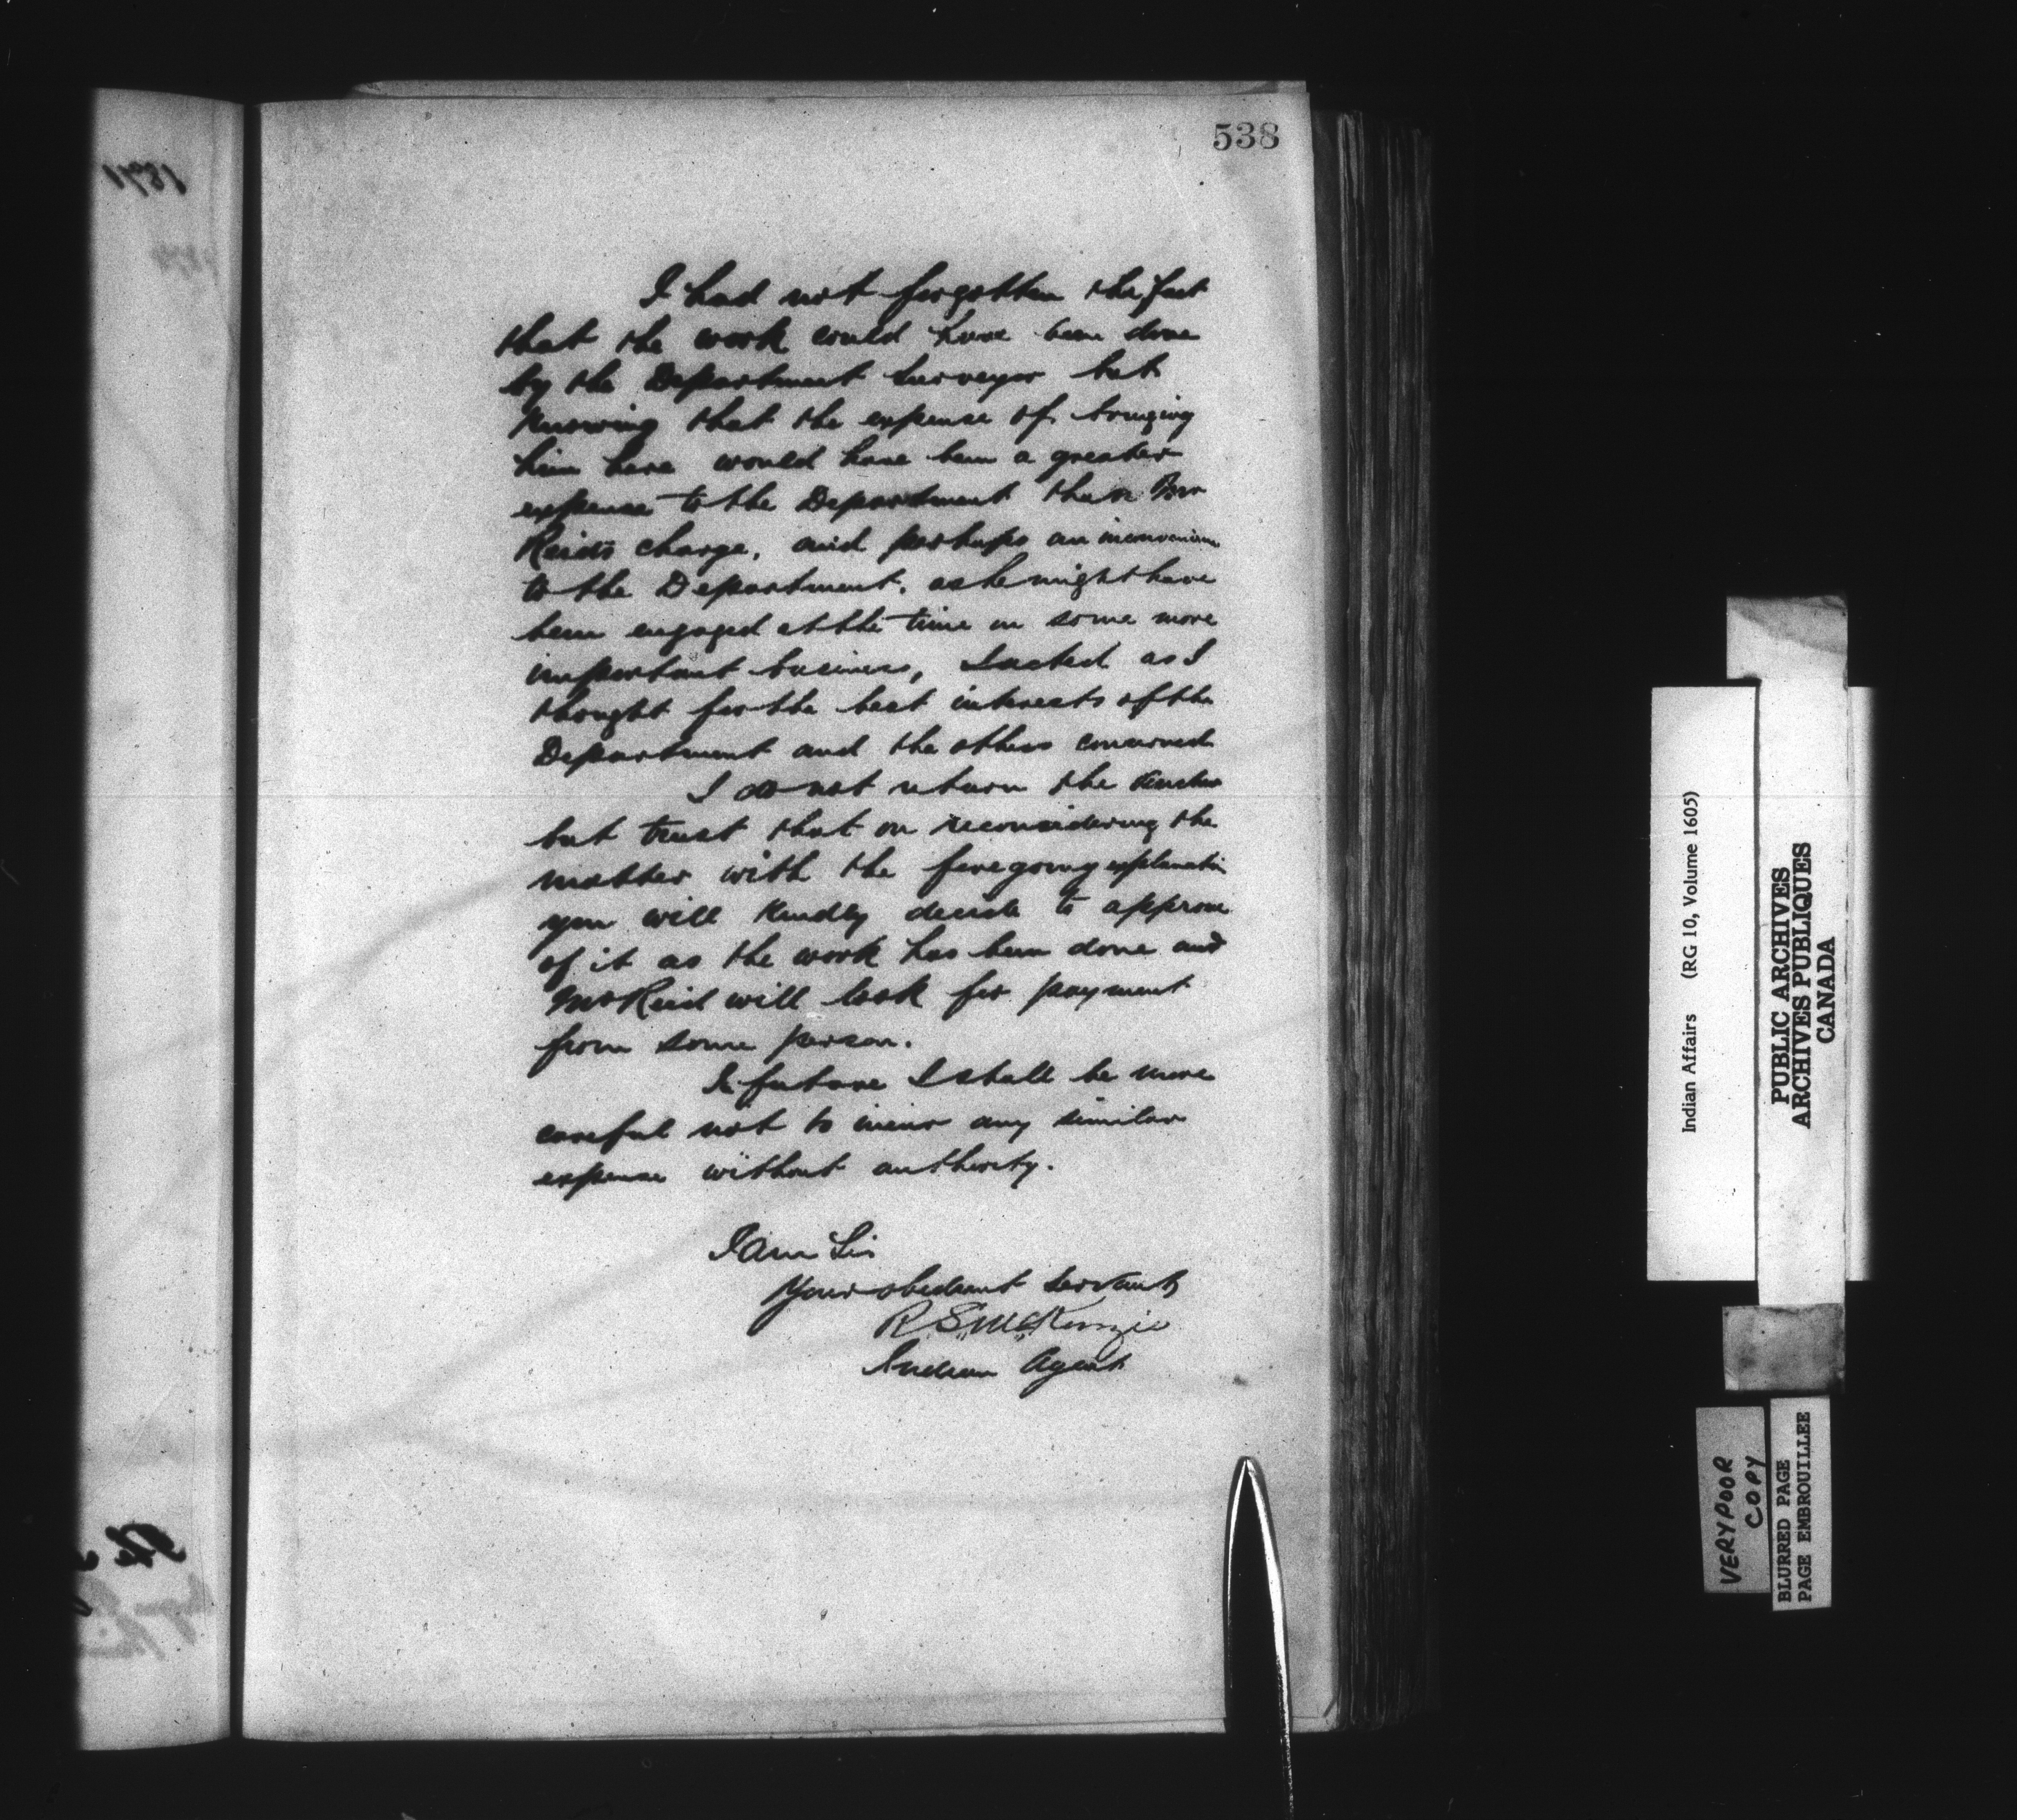 538
I had not forgotten the fact
that the work could have been done
by the Department Surveyor but
knowing that the expense of bringing
him here would have been a greater
expense to the Department than Mr
Reids charge, and perhaps an inconvenience
to the Department, as he might have
been engaged at the time on some more
important business, I acted as I
thought for the best interests of the
Department and the others concerned
I do not return the
but trust that on reconsidering the
matter with the foregoing explanation
you will kindly decide to approve
of it as the work has been done and
Mr Reid will look for payment
from some person.
In future I shall be more
careful not to incur any similar
expense without authority.
I am Sir
Your obedient Servant
R. S. McKenzie
Indian Agent
Indian Affairs (RG 10, Volume 1605)
PUBLIC ARCHIVES
ARCHIVES PUBLIQUES
CANADA
VERY POOR
COPY
BLURRED PAGE
PAGE EMBROUILLEE